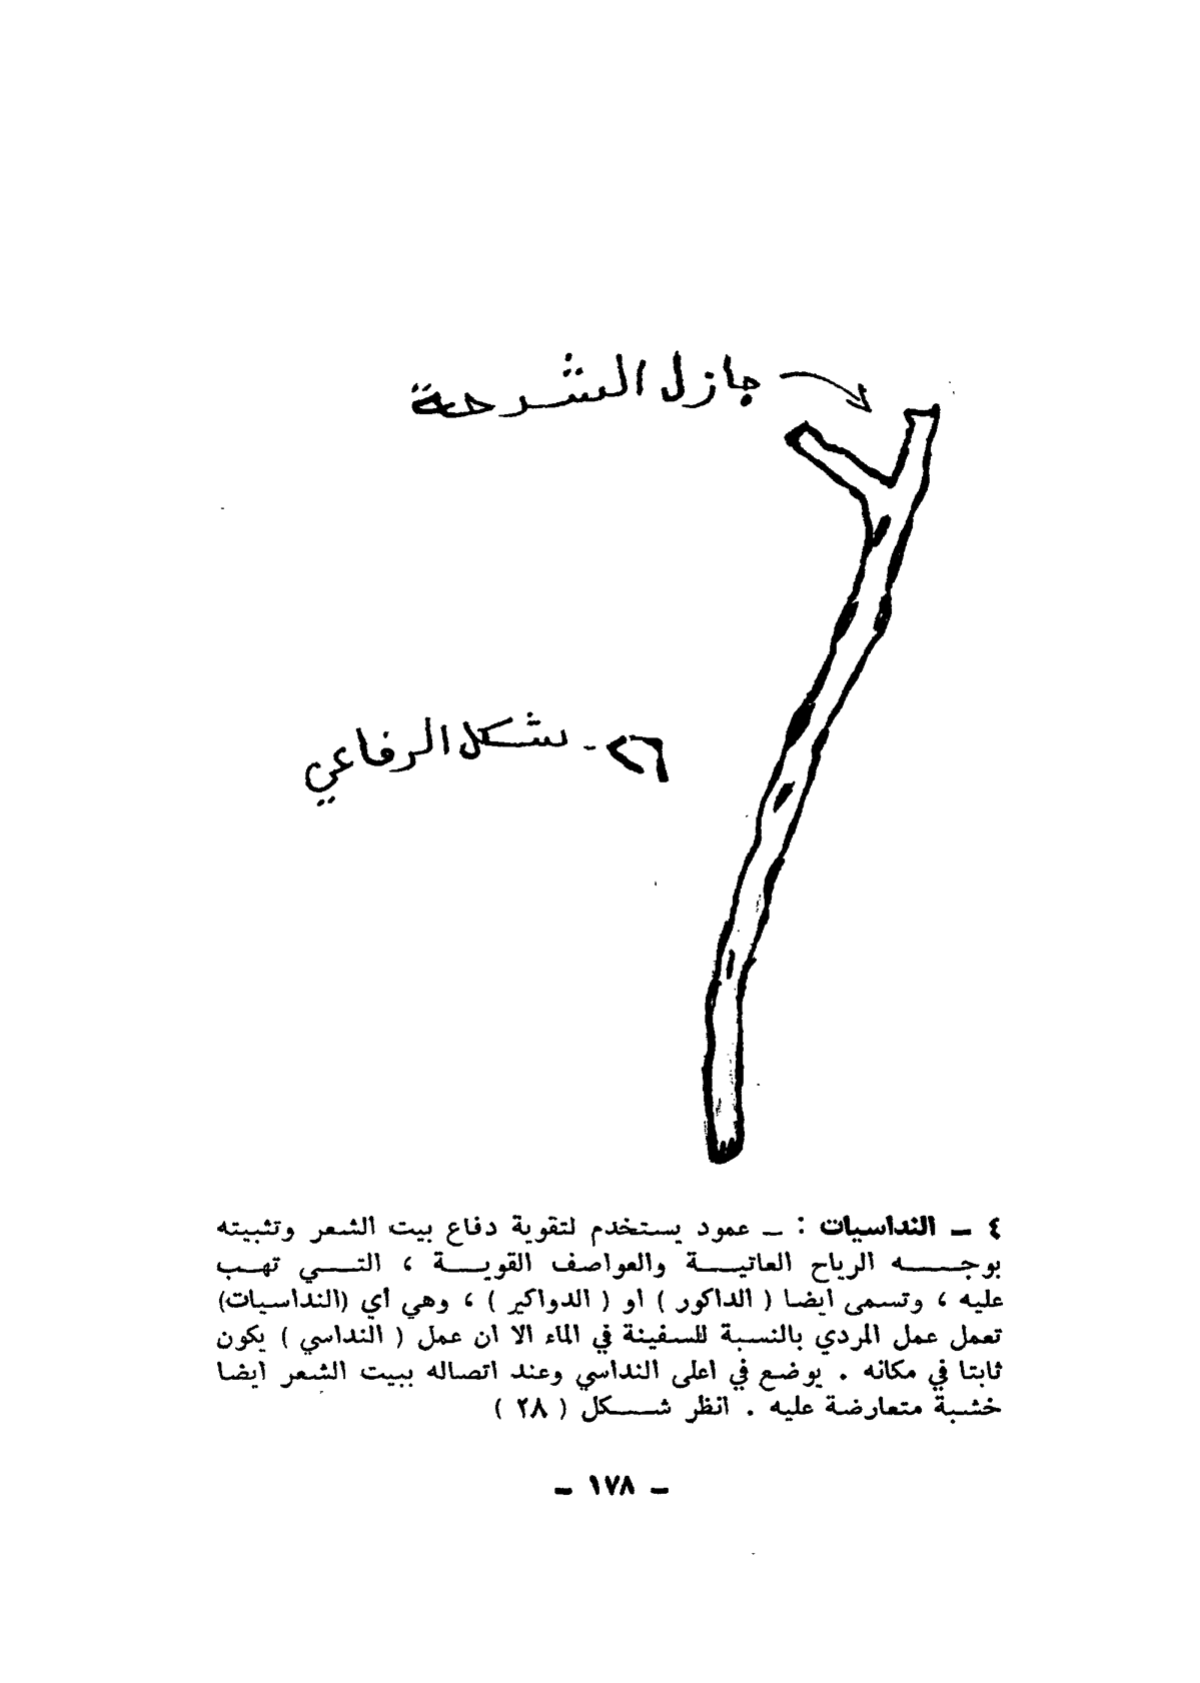 جازل الشرحة
٢٦- شكل الرفاعي
٤ ــ النداسيات : ــ عمود يستخدم لتقوية دفاع بيت الشعر وتثبيته
بوجـــــه الرياح العاتيـــة والعواصف القويـــة ، التـــي تهـب
عليه ، وتسمى ايضا ( الداكور ) او ( الدواكير ) ، وهي أي (النداسيات)
تعمل عمل المردي بالنسبة للسفينة في الماء الا ان عمل ( النداسي ) يكون
ثابتا في مكانه . يوضع في اعلى النداسي وعند اتصاله ببيت الشعر ايضا
خشبة متعارضة عليه . انظر شـــكل ( ٢٨ )
ــ ١٧٨ ــ